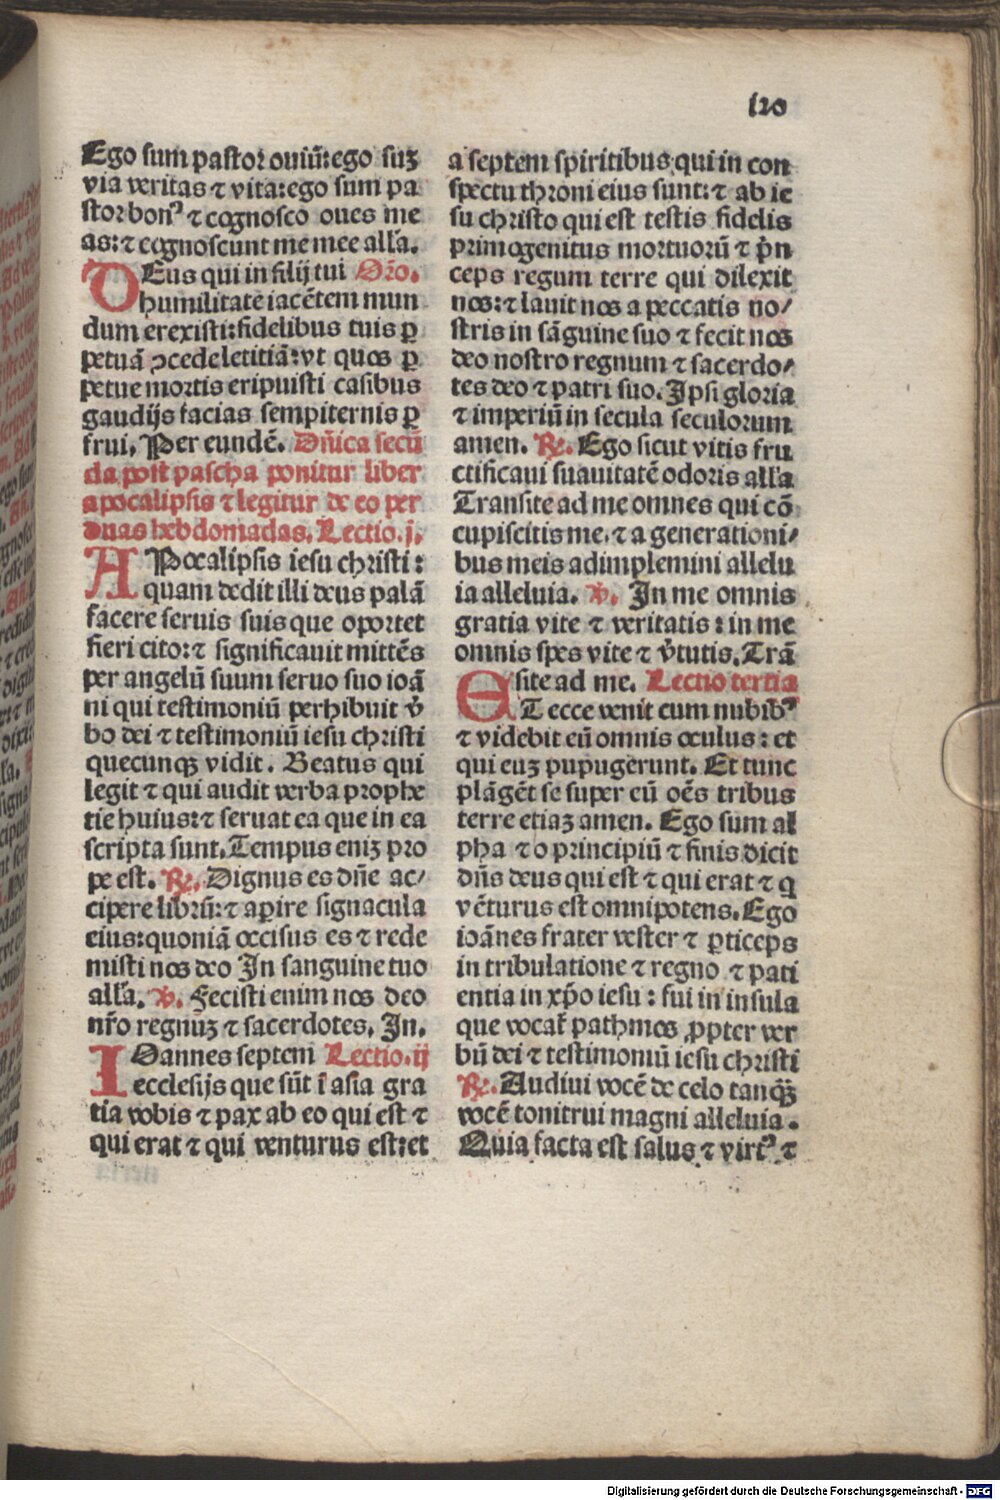 120
Ego sum pastor ouiū:ego suꝫ
via veritas ⁊ vita:ego sum pa
stor bonꝰ ⁊ cognosco oues me
as:⁊ cognoscunt me mee all'a.
DEus qui in filij tui Orō.
humilitate iacētem mun
dum erexisti:fidelibus tuis ꝑ
petuā ꝯcede letitiā:vt quos ꝑ
petue mortis eripuisti casibus
gaudijs facias sempiternis ꝑ
frui. Per eundē. Dn̄ica secū
da post pascha ponitur liber
apocalipsis ⁊ legitur de eo per
duas hebdomadas. Lectio.j.
APocalipsis iesu christi:
quam dedit illi deus palā
facere seruis suis que oportet
fieri cito:⁊ significauit mittēs
per angelū suum seruo suo ioā
ni qui testimoniū perhibuit v̓
bo dei ⁊ testimoniū iesu christi
quecunqꝫ vidit. Beatus qui
legit ⁊ qui audit verba prophe
tie huius:⁊ seruat ea que in ea
scripta sunt.Tempus eniꝫ pro
pe est. ℞. Dignus es dn̄e ac/
cipere librū:⁊ aperire signacula
eius:quoniā occisus es ⁊ rede
misti nos deo In sanguine tuo
all'a. ℣. Fecisti enim nos deo
nr̄o regnuꝫ ⁊ sacerdotes. In.
IOannes septem Lectio.ij
ecclesijs que sūt ī asia gra
tia vobis ⁊ pax ab eo qui est ⁊
qui erat ⁊ qui venturus est:et
a septem spiritibus qui in con
spectu throni eius sunt:⁊ ab ie
su christo qui est testis fidelis
primogenitus mortuorū ⁊ p̓n
ceps regum terre qui dilexit
nos:⁊ lauit nos a peccatis no/
stris in sāguine suo ⁊ fecit nos
deo nostro regnum ⁊ sacerdo/
tes deo ⁊ patri suo. Ipsi gloria
⁊ imperiū in secula seculorum
amen. ℞. Ego sicut vitis fru
ctificaui suauitatē odoris all'a
Transite ad me omnes qui cō
cupiscitis me.⁊ a generationi/
bus meis adimplemini allelu
ia alleluia. ℣. In me omnis
gratia vite ⁊ veritatis:in me
omnis spes vite ⁊ v̓tutis.Trā
site ad me. Lectio tertia
ET ecce venit cum nubibꝰ
⁊ videbit eū omnis oculus:et
qui euꝫ pupugerunt. Et tunc
plāgēt se super eū oēs tribus
terre etiaꝫ amen. Ego sum al
pha ⁊ o principiū ⁊ finis dicit
dn̄s deus qui est ⁊ qui erat ⁊ q
vēturus est omnipotens.Ego
ioānes frater vester ⁊ ꝑticeps
in tribulatione ⁊ regno ⁊ pati
entia in xp̄o iesu:fui in insula
que vocat᷑ pathmos ꝓpter ver
bū dei ⁊ testimoniū iesu christi
℞. Audiui vocē de celo tanqꝫ
vocē tonitrui magni alleluia.
Quia facta est salus ⁊ virtꝰ ⁊
Digitalisierung gefördert durch die Deutsche Forschungsgemeinschaft - DFG